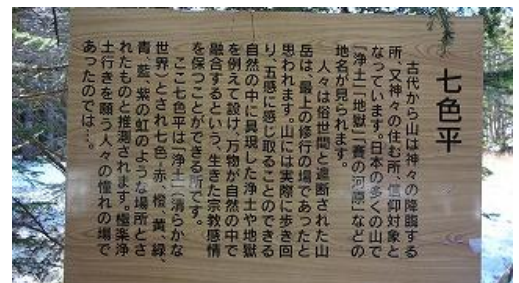 七色平
古代から山は神々の降臨する
所、又神々の住む所、信仰対象と
なっています。日本の多くの山で
「浄土」「地獄」「賽の河原」などの
地名が見られます。
人々は俗世間と遮断された山
岳は、最上の修行の場であったと
思われます。山には実際に歩き回
り、五感に感じ取ることのできる
自然の中に具現した浄土や地獄
を例えて設け、万物が自然の中で
融合するという、生きた宗教感情
を保つことができる所です。
ここ七色平は「浄土」（清らかな
世界）とされ七色＝赤、橙、黄、緑、
青、藍、紫の虹のような場所とさ
れたものと推測されます。極楽浄
土行きを願う人々の憧れの場で
あったのでは…。